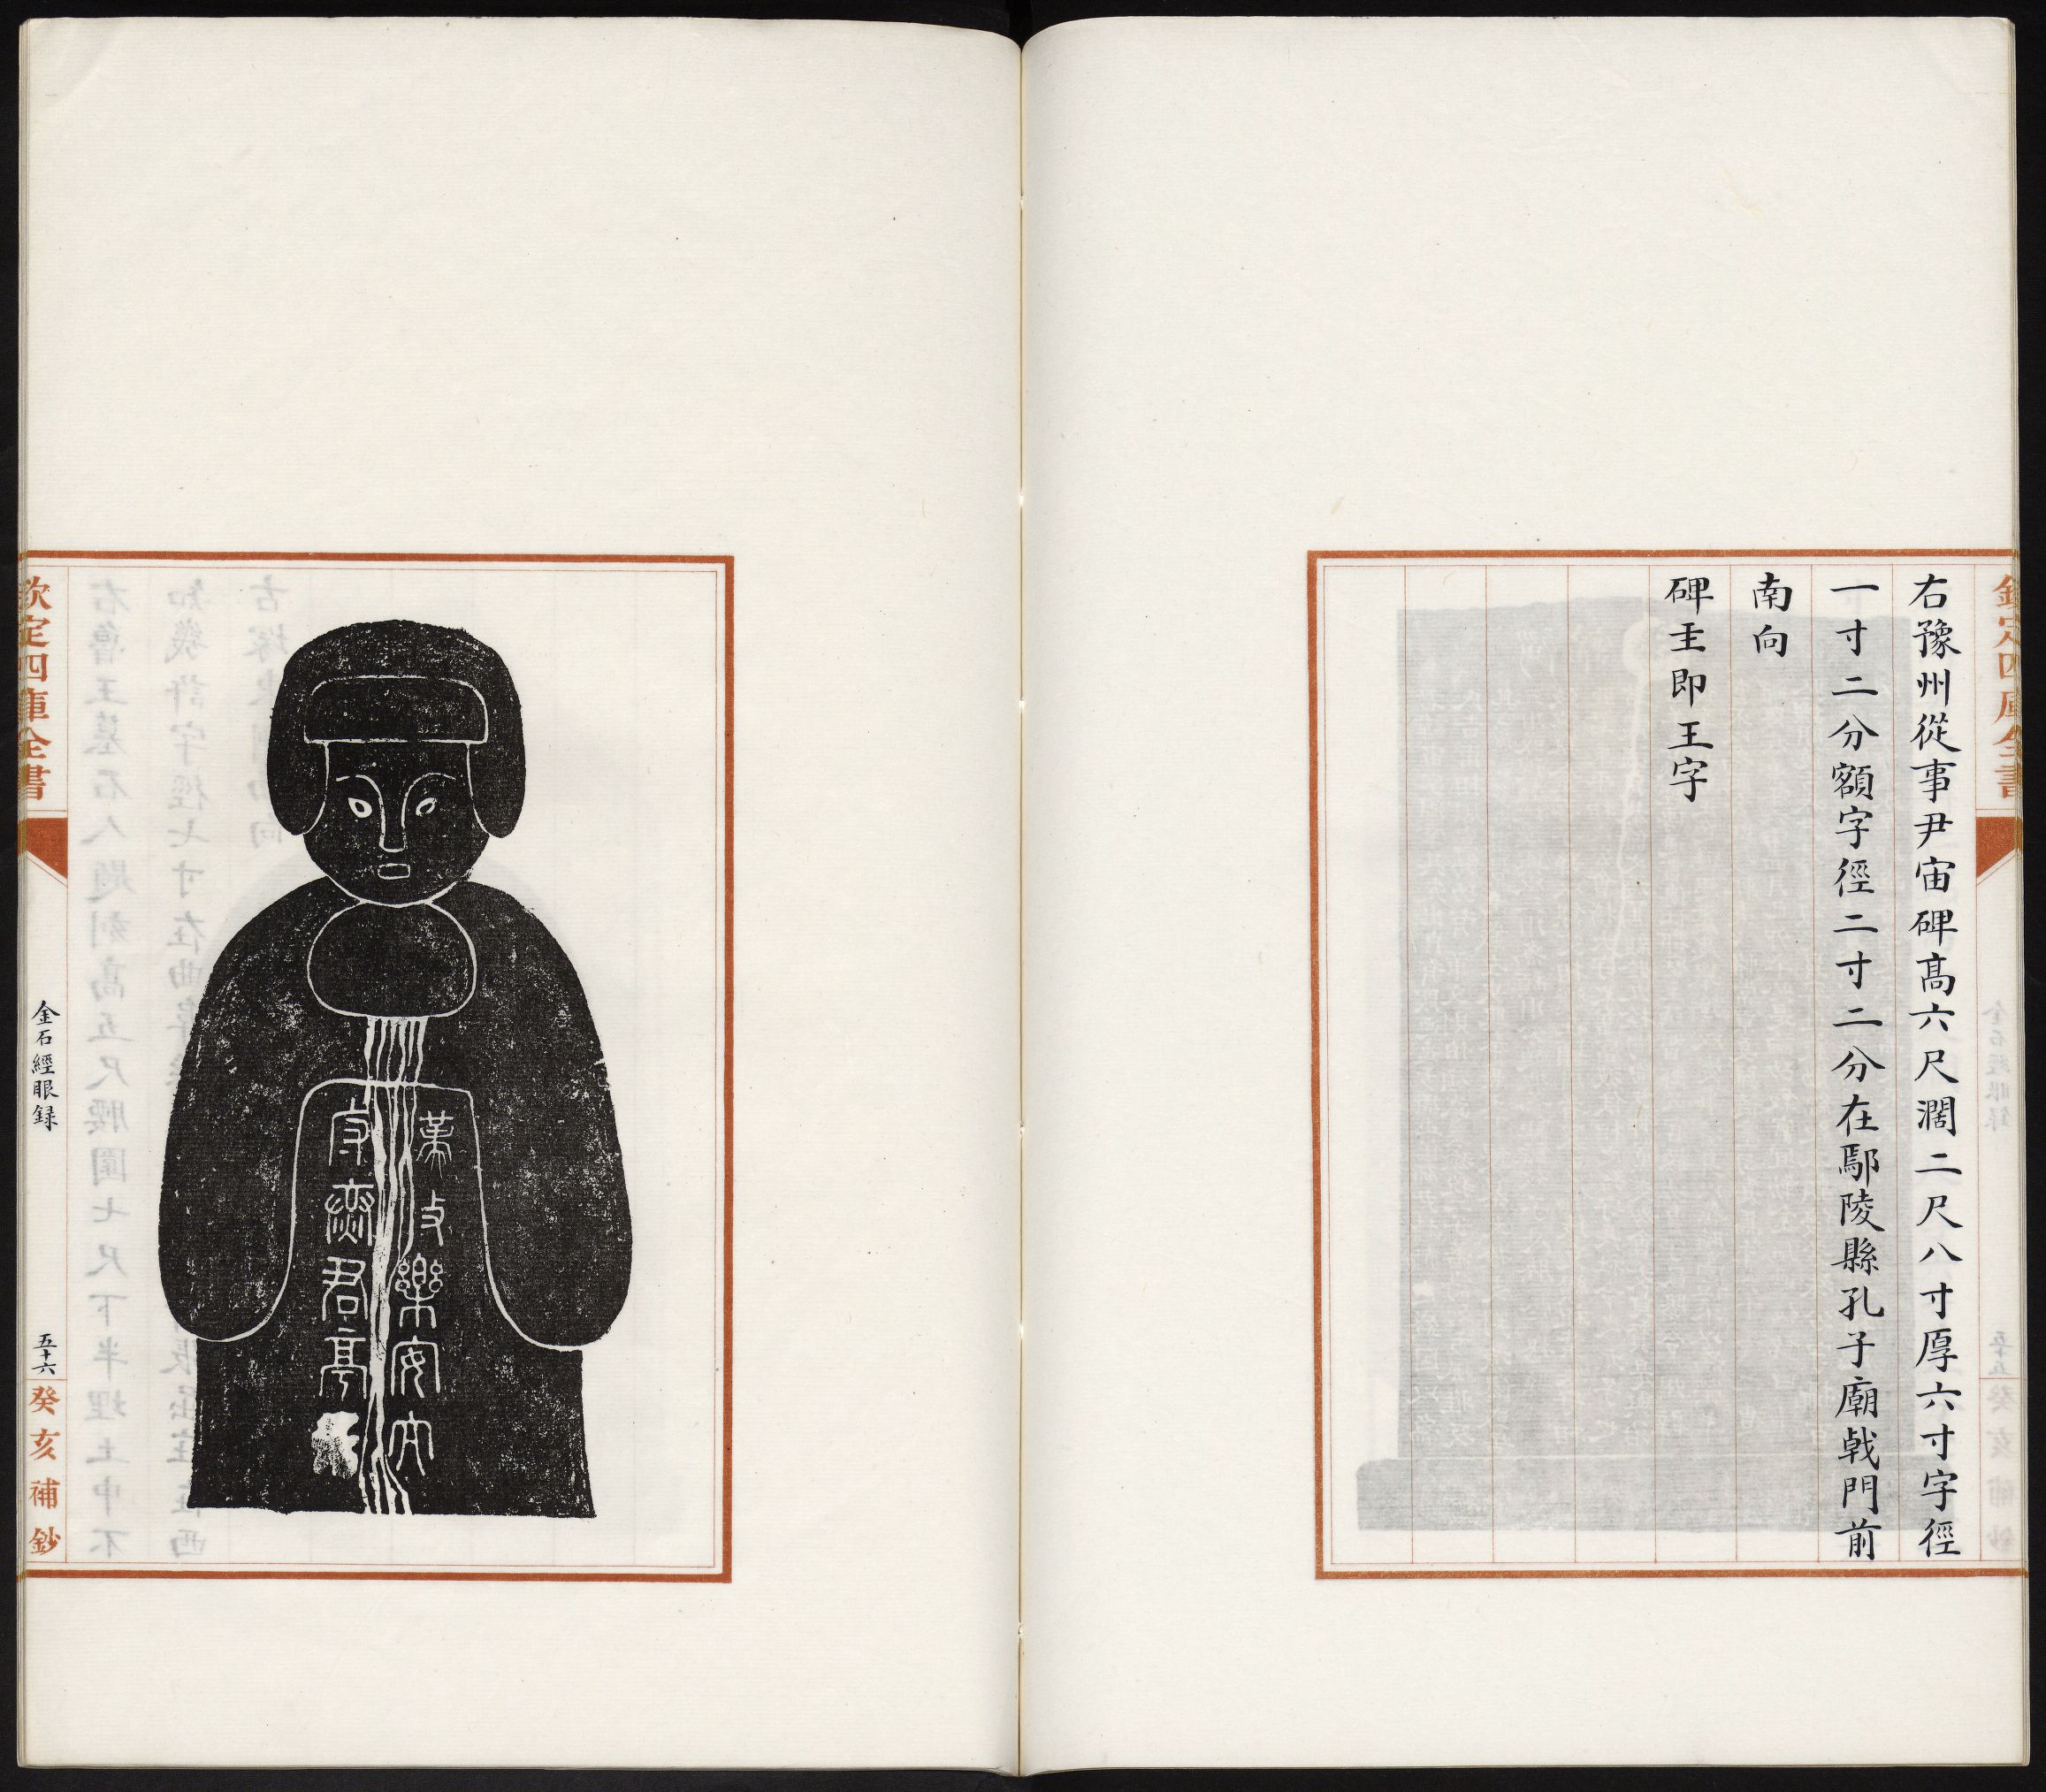 欽定四庫全書
右豫州從事尹宙碑高六尺濶二尺八寸厚六寸字徑
一寸二分額字徑二寸二分在鄢陵縣孔子廟戟門前
南向
碑主即王字
漢故樂安太
守麃君亭
欽定四庫全書
金石經眼録
五十六
癸亥補鈔